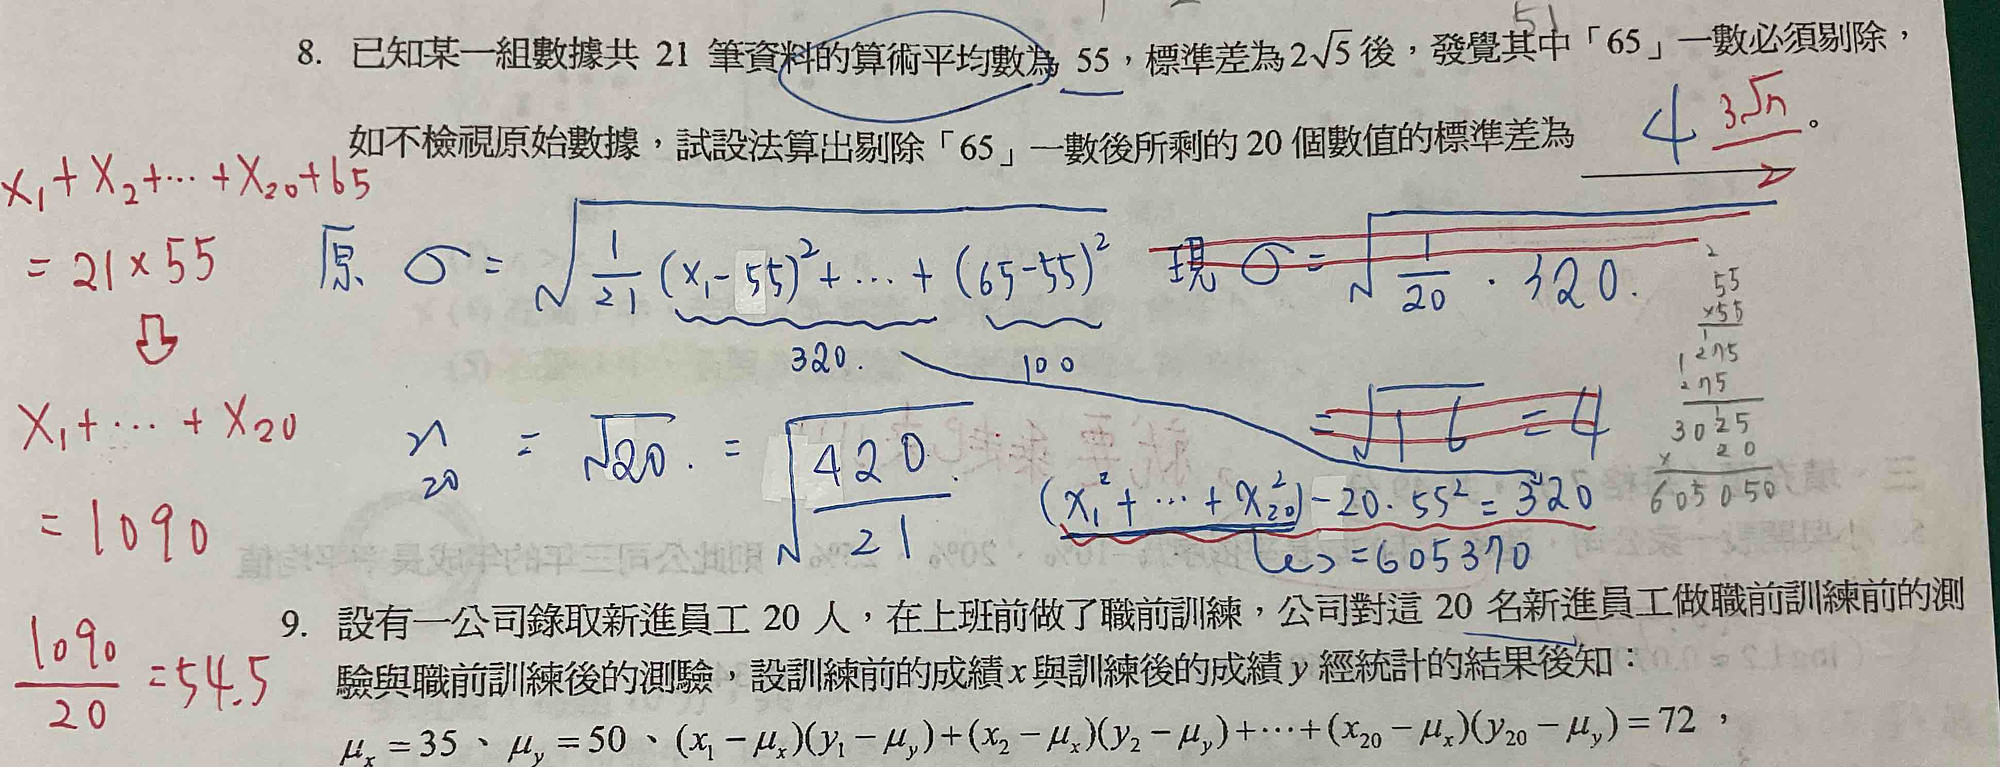 51
8. 已知某一組數據共 21 筆資料的算術平均數為 55，標準差為 2√5 後，發覺其中「65」一數必須剔除，
如不檢視原始數據，試設法算出剔除「65」一數後所剩的 20 個數值的標準差為 4 3√n 。
x₁+x₂+⋯+x₂₀+65
= 21×55
⇩
x₁+⋯+x₂₀
= 1090
1090/20 = 54.5
原 σ = √(1/21 (x₁-55)²+⋯+(65-55)²
320. 100
20 = √20. = √(420/21)
現 σ = √(1/20 · 320.
= √16 = 4
(x₁²+⋯+x₂₀²)-20·55² = 320
=605370
2
55
×55
1
275
275
3025
× 20
605050
9. 設有一公司錄取新進員工 20 人，在上班前做了職前訓練，公司對這 20 名新進員工做職前訓練前的測
驗與職前訓練後的測驗，設訓練前的成績 x 與訓練後的成績 y 經統計的結果後知：
μₓ = 35、μ_y = 50、(x₁ - μₓ)(y₁ - μ_y)+(x₂ - μₓ)(y₂ - μ_y)+⋯+(x₂₀ - μₓ)(y₂₀ - μ_y) = 72，